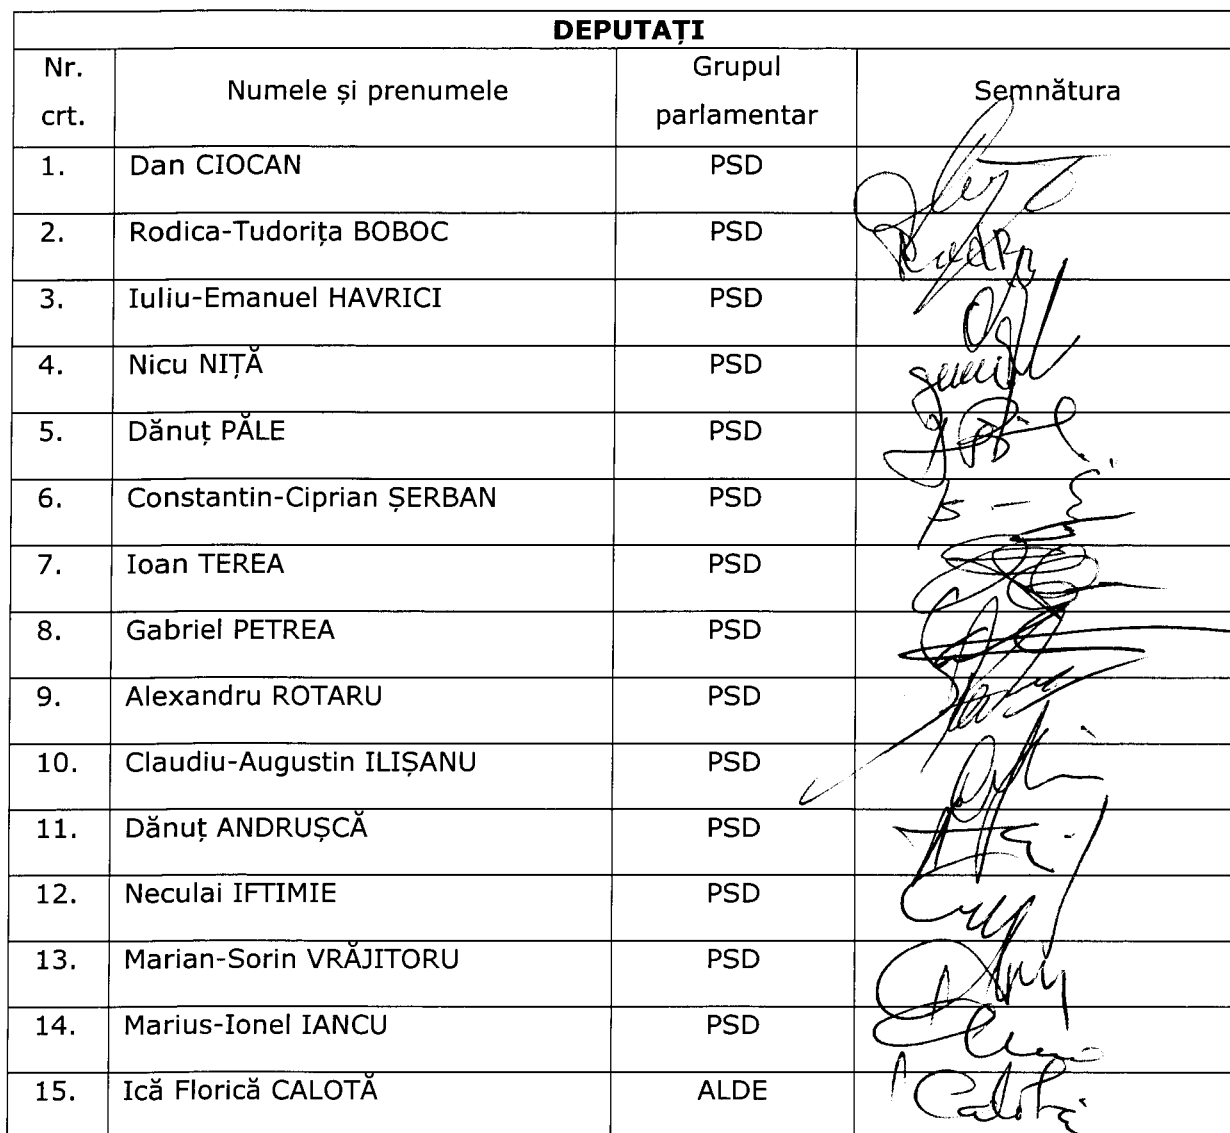 DEPUTAȚI
Nr. crt. Numele și prenumele Grupul parlamentar Semnătura
1. Dan CIOCAN PSD
2. Rodica-Tudorița BOBOC PSD
3. Iuliu-Emanuel HAVRICI PSD
4. Nicu NIȚĂ PSD
5. Dănuț PĂLE PSD
6. Constantin-Ciprian ȘERBAN PSD
7. Ioan TEREA PSD
8. Gabriel PETREA PSD
9. Alexandru ROTARU PSD
10. Claudiu-Augustin ILIȘANU PSD
11. Dănuț ANDRUȘCĂ PSD
12. Neculai IFTIMIE PSD
13. Marian-Sorin VRĂJITORU PSD
14. Marius-Ionel IANCU PSD
15. Ică Florică CALOTĂ ALDE Calotă